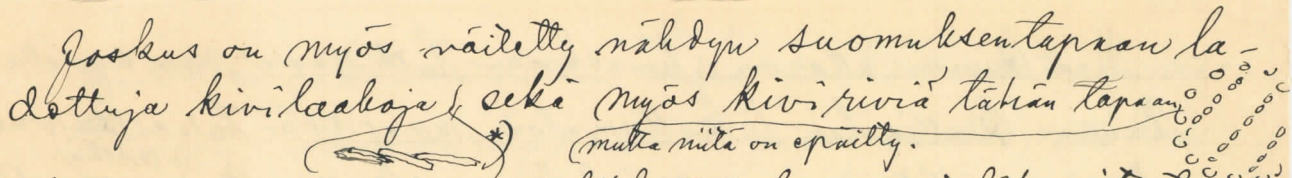 Joskus on myös väitetty nähdyn suomuksentapaan la-
dottuja kivilaakoja, sekä myös kiviriviä tähän tapaan
mutta niitä on epäilty.